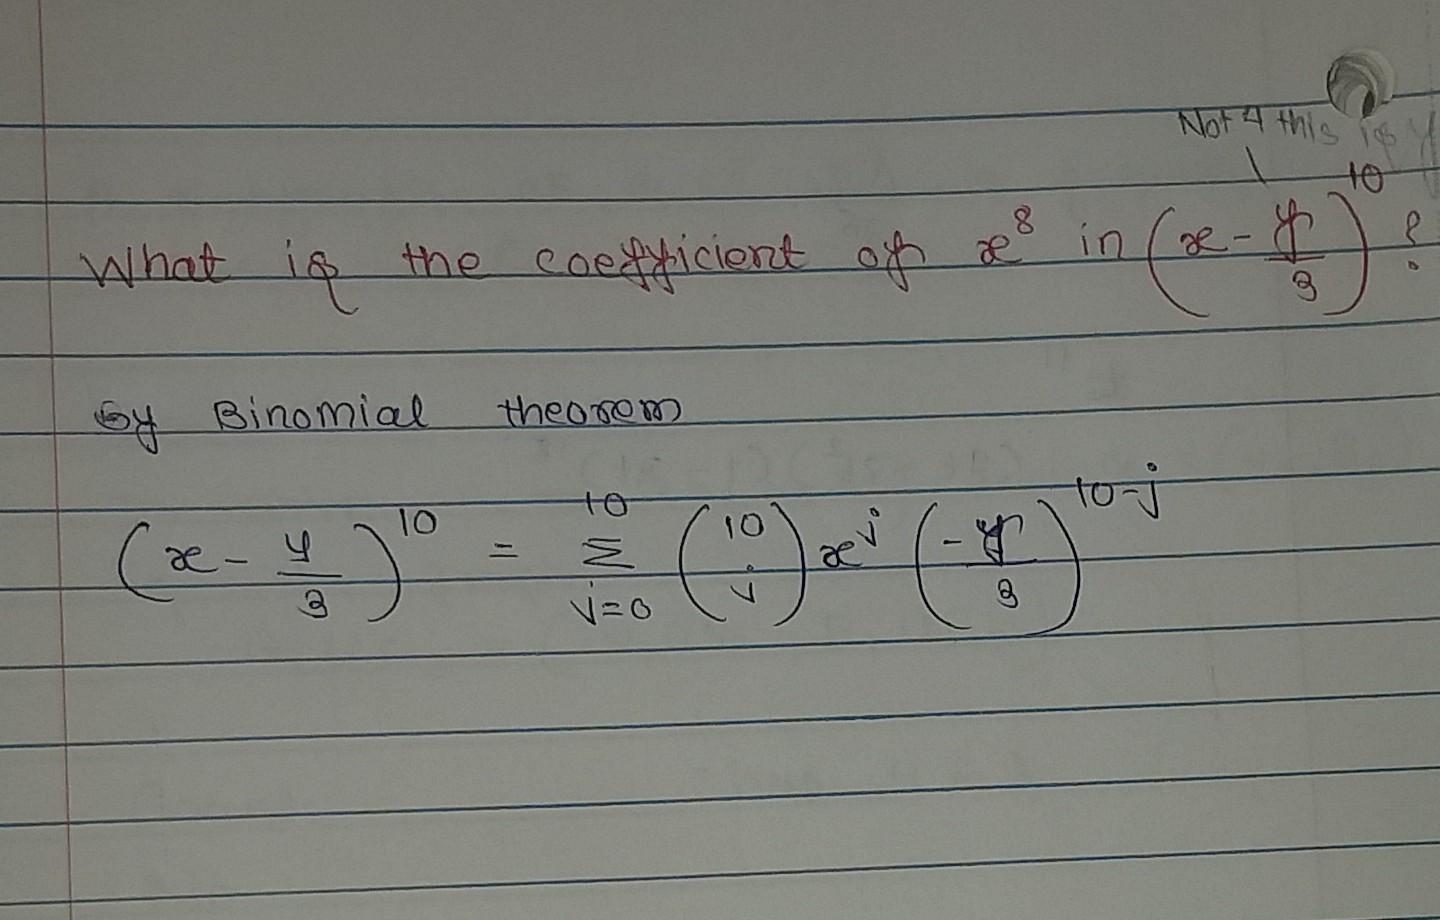 Not 4 this is y
What is the coefficient of x⁸ in (x - y/3)¹⁰ ?
By Binomial theorem
(x - y/3)¹⁰ = Σ_{j=0}^{10} (10 j) x^j (-y/3)^{10-j}